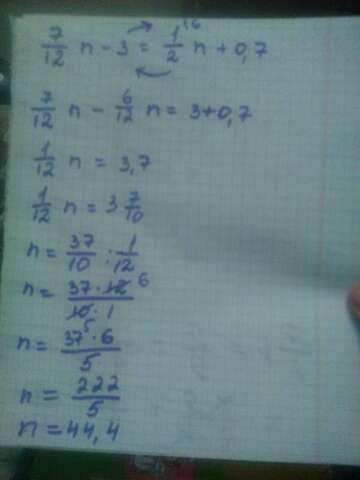 7/12 n - 3 = 1/2 ^16 n + 0,7
7/12 n - 6/12 n = 3 + 0,7
1/12 n = 3,7
1/12 n = 3 7/10
n = 37/10 : 1/12
n = 37 · 12 6 / 10 · 1
5
n = 37 · 6 / 5
n = 222/5
n = 44,4